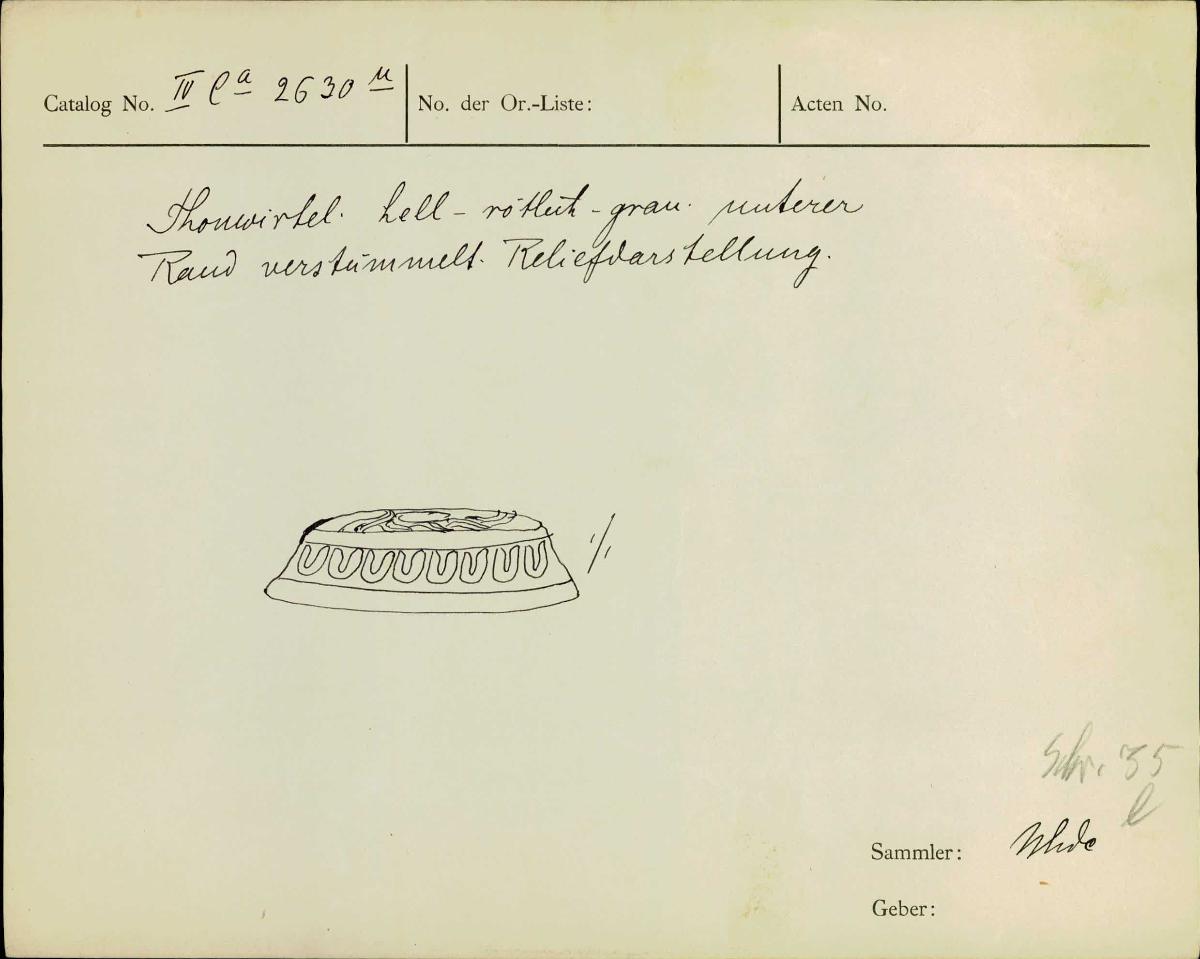 Catalog No. IV Ca 2630 u
No. der Or.-Liste:
Acten No.
Thonwirtel. hell-rötlich-grau. unterer
Rand verstümmelt. Reliefdarstellung.
1/1
Schr. 35
l
Sammler: Uhde
Geber: